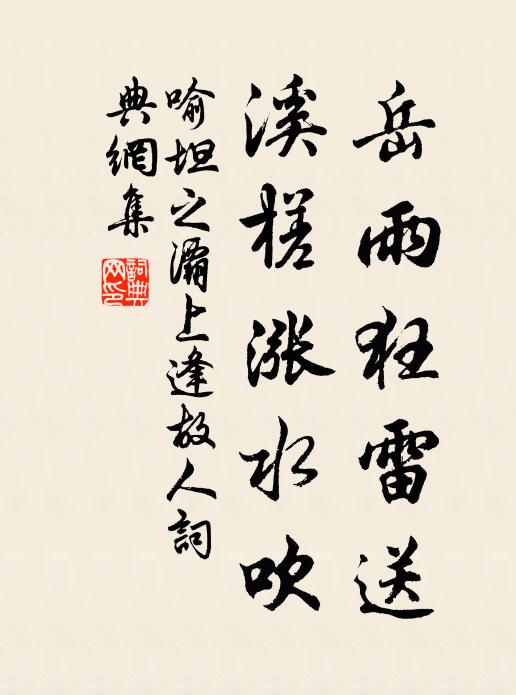 岳雨狂雷送
溪槎漲水吹
喻坦之灞上逢故人詞
典網集
詞典
网印